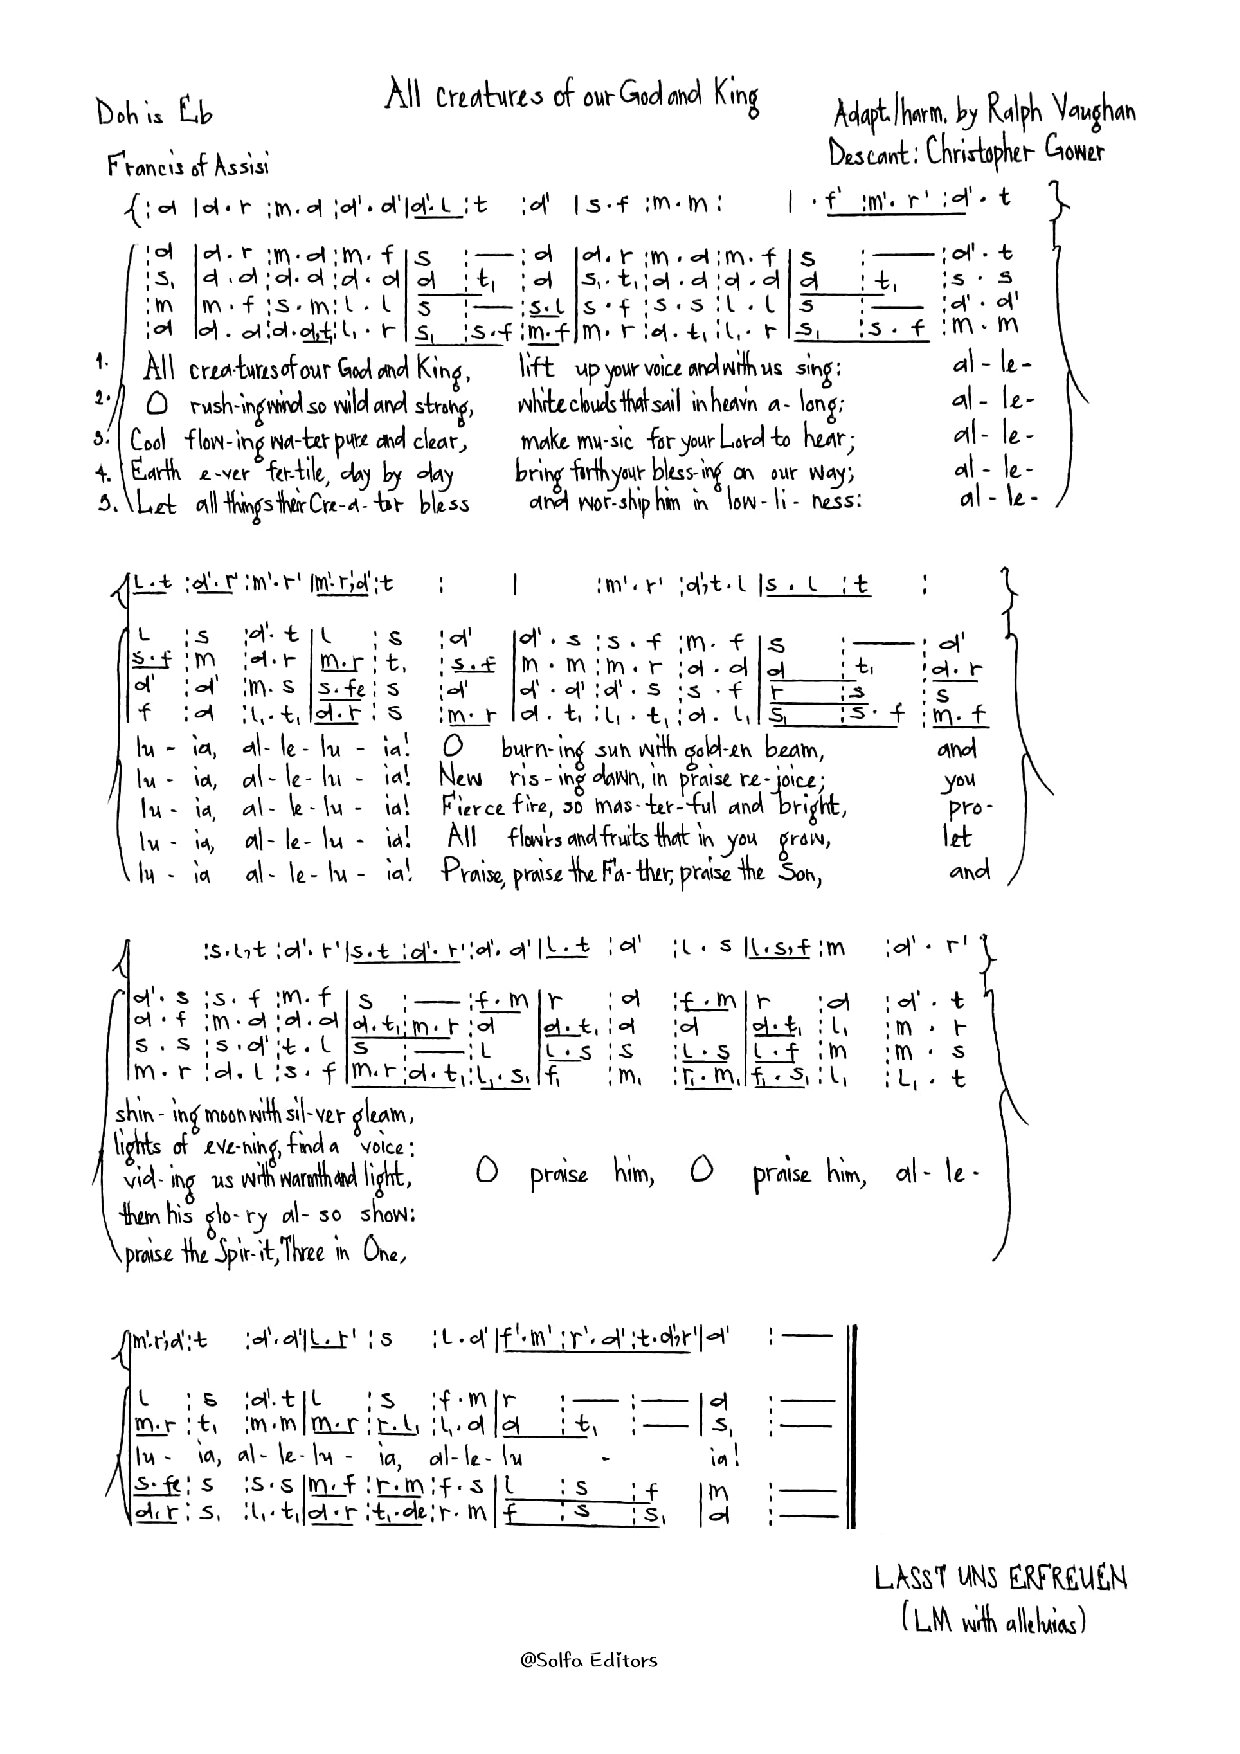 All creatures of our God and King
Doh is Eb
Adapt./harm. by Ralph Vaughan
Descant: Christopher Gower
Francis of Assisi
{:d |d.r :m.d :d'.d'|d'.l :t :d' |s.f :m.m: | .f' :m'.r' :d'.t }
:d |d.r :m.d :m.f |s :— :d |d.r :m.d :m.f |s :— :d'.t
:s, |d.d :d.d :d.d |d :t, :d |s,.t, :d.d :d.d |d :t, :s.s
:m |m.f :s.m :l.l |s :— :s.l |s.f :s.s :l.l |s :— :d'.d'
:d |d.d :d.d,t, :l,.r |s, :s.f :m.f |m.r :d.t, :l,.r |s, :s.f :m.m
1. All crea-tures of our God and King, lift up your voice and with us sing: al-le-
2. O rush-ing wind so wild and strong, white clouds that sail in heav'n a-long; al-le-
3. Cool flow-ing wa-ter pure and clear, make mu-sic for your Lord to hear; al-le-
4. Earth e-ver fer-tile, day by day bring forth your bless-ing on our way; al-le-
5. Let all things their Cre-a-tor bless and wor-ship him in low-li-ness: al-le-
{l.t :d'.r' :m'.r' |m'.r',d' :t : | :m'.r' :d',t.l |s.l :t : }
l :s :d'.t |l :s :d' |d'.s :s.f :m.f |s :— :d'
s.f :m :d.r |m.r :t, :s.f |m.m :m.r :d.d |d :t, :d.r
d' :d' :m.s |s.fe :s :d' |d'.d' :d'.s :s.f |r :s :s
f :d :l,.t, |d.r :s :m.r |d.t, :l,.t, :d.l, |s, :s.f :m.f
lu-ia, al-le-lu-ia! O burn-ing sun with gold-en beam, and
lu-ia, al-le-lu-ia! New ris-ing dawn, in praise re-joice; you
lu-ia, al-le-lu-ia! Fierce fire, so mas-ter-ful and bright, pro-
lu-ia, al-le-lu-ia! All flow'rs and fruits that in you grow, let
lu-ia al-le-lu-ia! Praise, praise the Fa-ther, praise the Son, and
{ :s.l,t :d'.r' |s.t :d'.r' :d'.d' |l.t :d' :l.s |l.s,f :m :d'.r' }
d'.s :s.f :m.f |s :— :f.m |r :d :f.m |r :d :d'.t
d.f :m.d :d.d |d.t, :m.r :d |d.t, :d :d |d.t, :l, :m.r
s.s :s.d' :t.l |s :— :l |l.s :s :l.s |l.f :m :m.s
m.r :d.l :s.f |m.r :d.t, :l,.s, |f, :m, :r,.m, |f,.s, :l, :l,.t
shin-ing moon with sil-ver gleam,
lights of eve-ning, find a voice:
vid-ing us with warmth and light, O praise him, O praise him, al-le-
them his glo-ry al-so show:
praise the Spir-it, Three in One,
{m'.r',d' :t :d'.d' |l.r' :s :l.d' |f'.m' :r'.d' :t.d',r' |d' :—
l :s :d'.t |l :s :f.m |r :— :— |d :—
m.r :t, :m.m |m.r :r.l, :l,.d |d :t, :— |s, :—
lu-ia, al-le-lu-ia, al-le-lu - ia!
s.fe :s :s.s |m.f :r.m :f.s |l :s :f |m :—
d.r :s, :l,.t, |d.r :t,.de :r.m |f :s :s, |d :—
LASST UNS ERFREUEN
(LM with alleluias)
@Solfa Editors